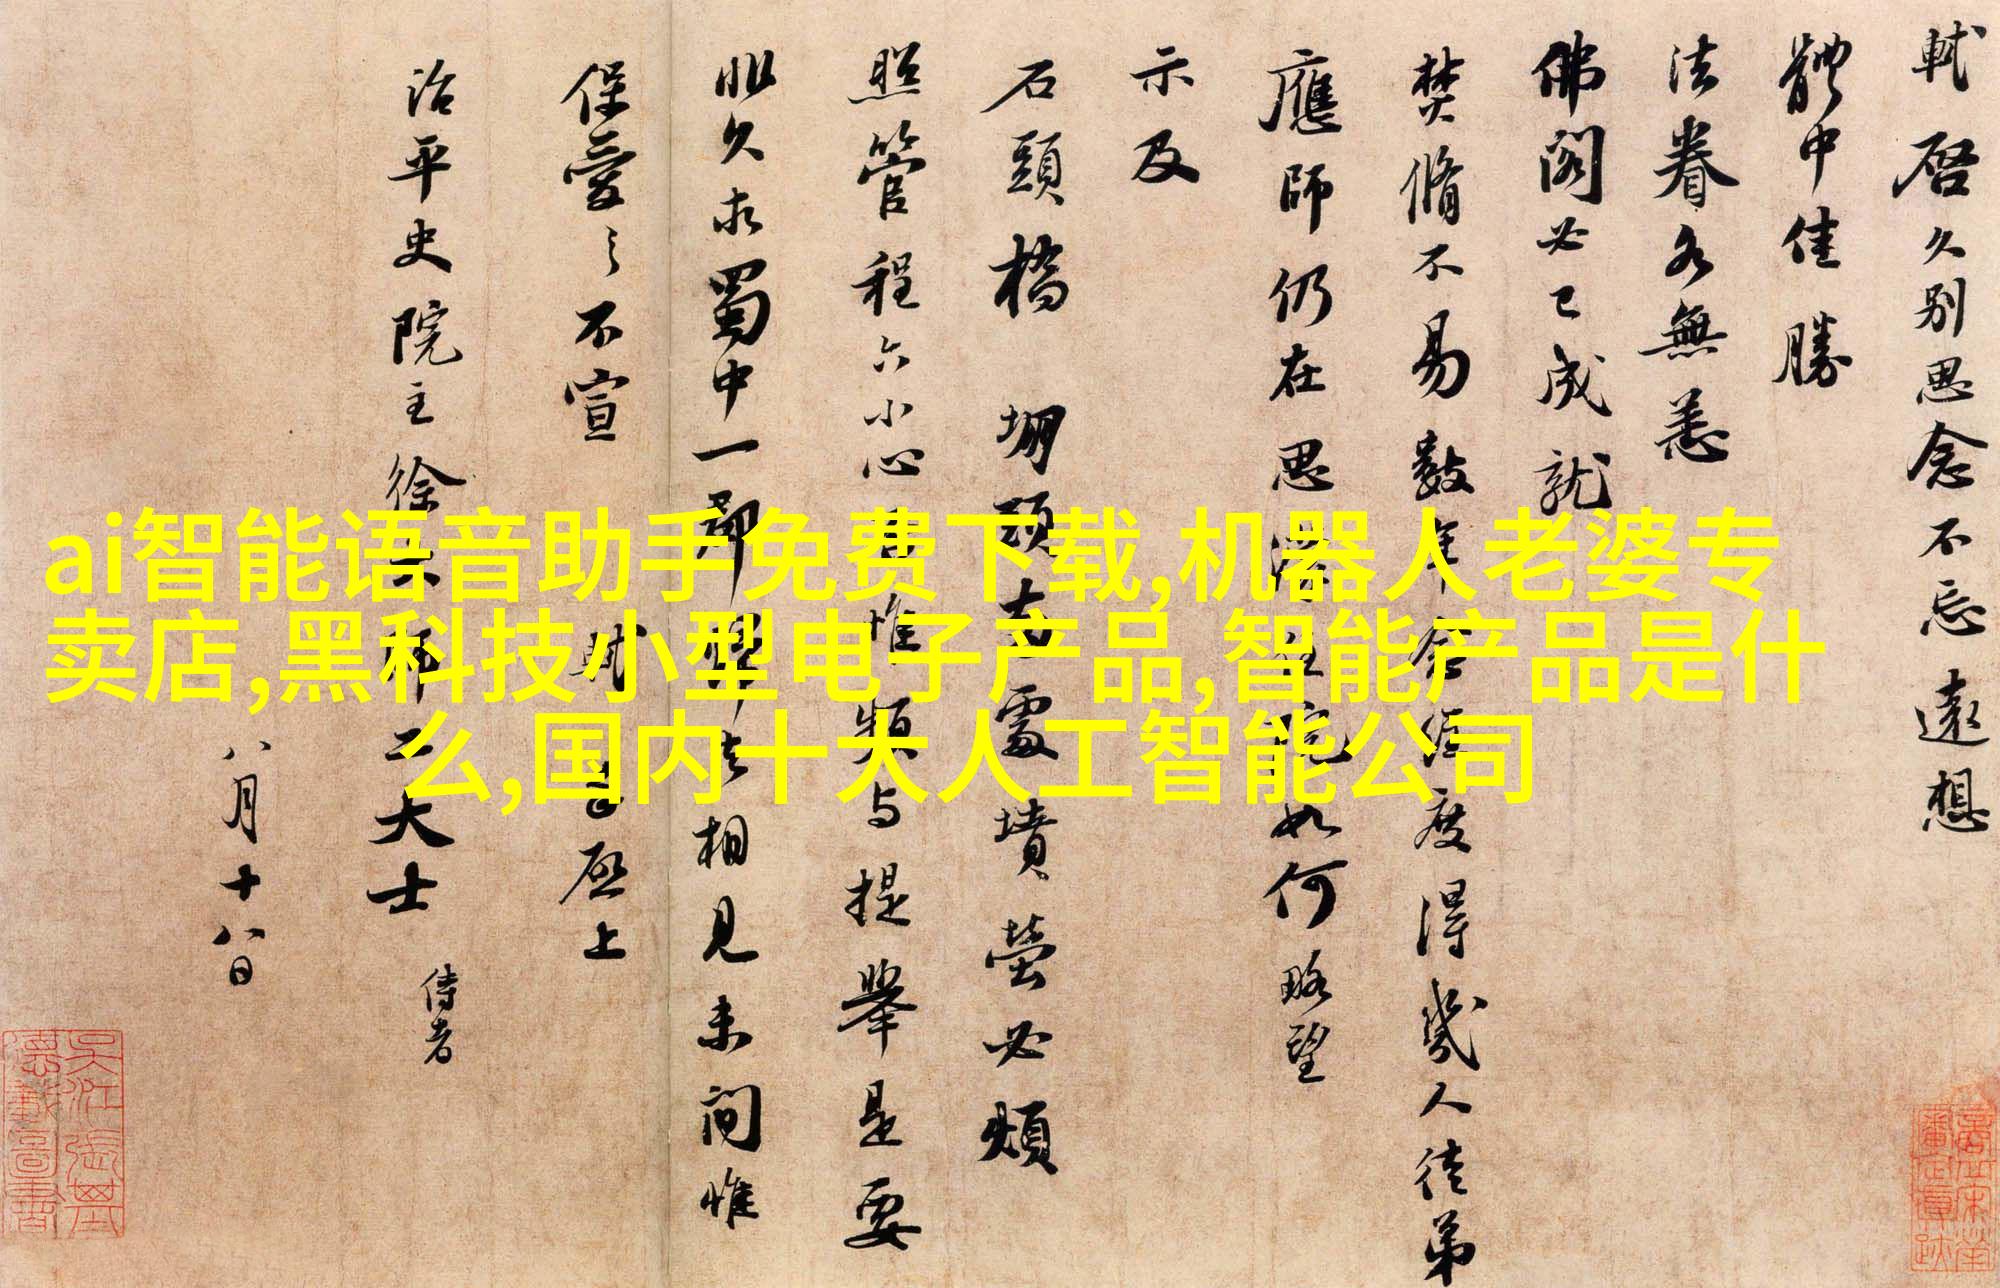 軾啓久别思念不忘遠想
體中佳勝
法眷各無恙
佛閣必已成就
焚脩不易數年念經度得幾人徒弟
應師仍在思濛住院如何略望
示及
石頭橋堋頭兩處墳塋必煩
照管程六小心否惟頻與提舉是要
非久求蜀中一郡歸去相見未間惟
保愛之不宣軾手啓上
治平史院主徐大師二大士侍者
八月十八日
ai智能语音助手免费下载,机器人老婆专
卖店,黑科技小型电子产品,智能产品是什
么,国内十大人工智能公司